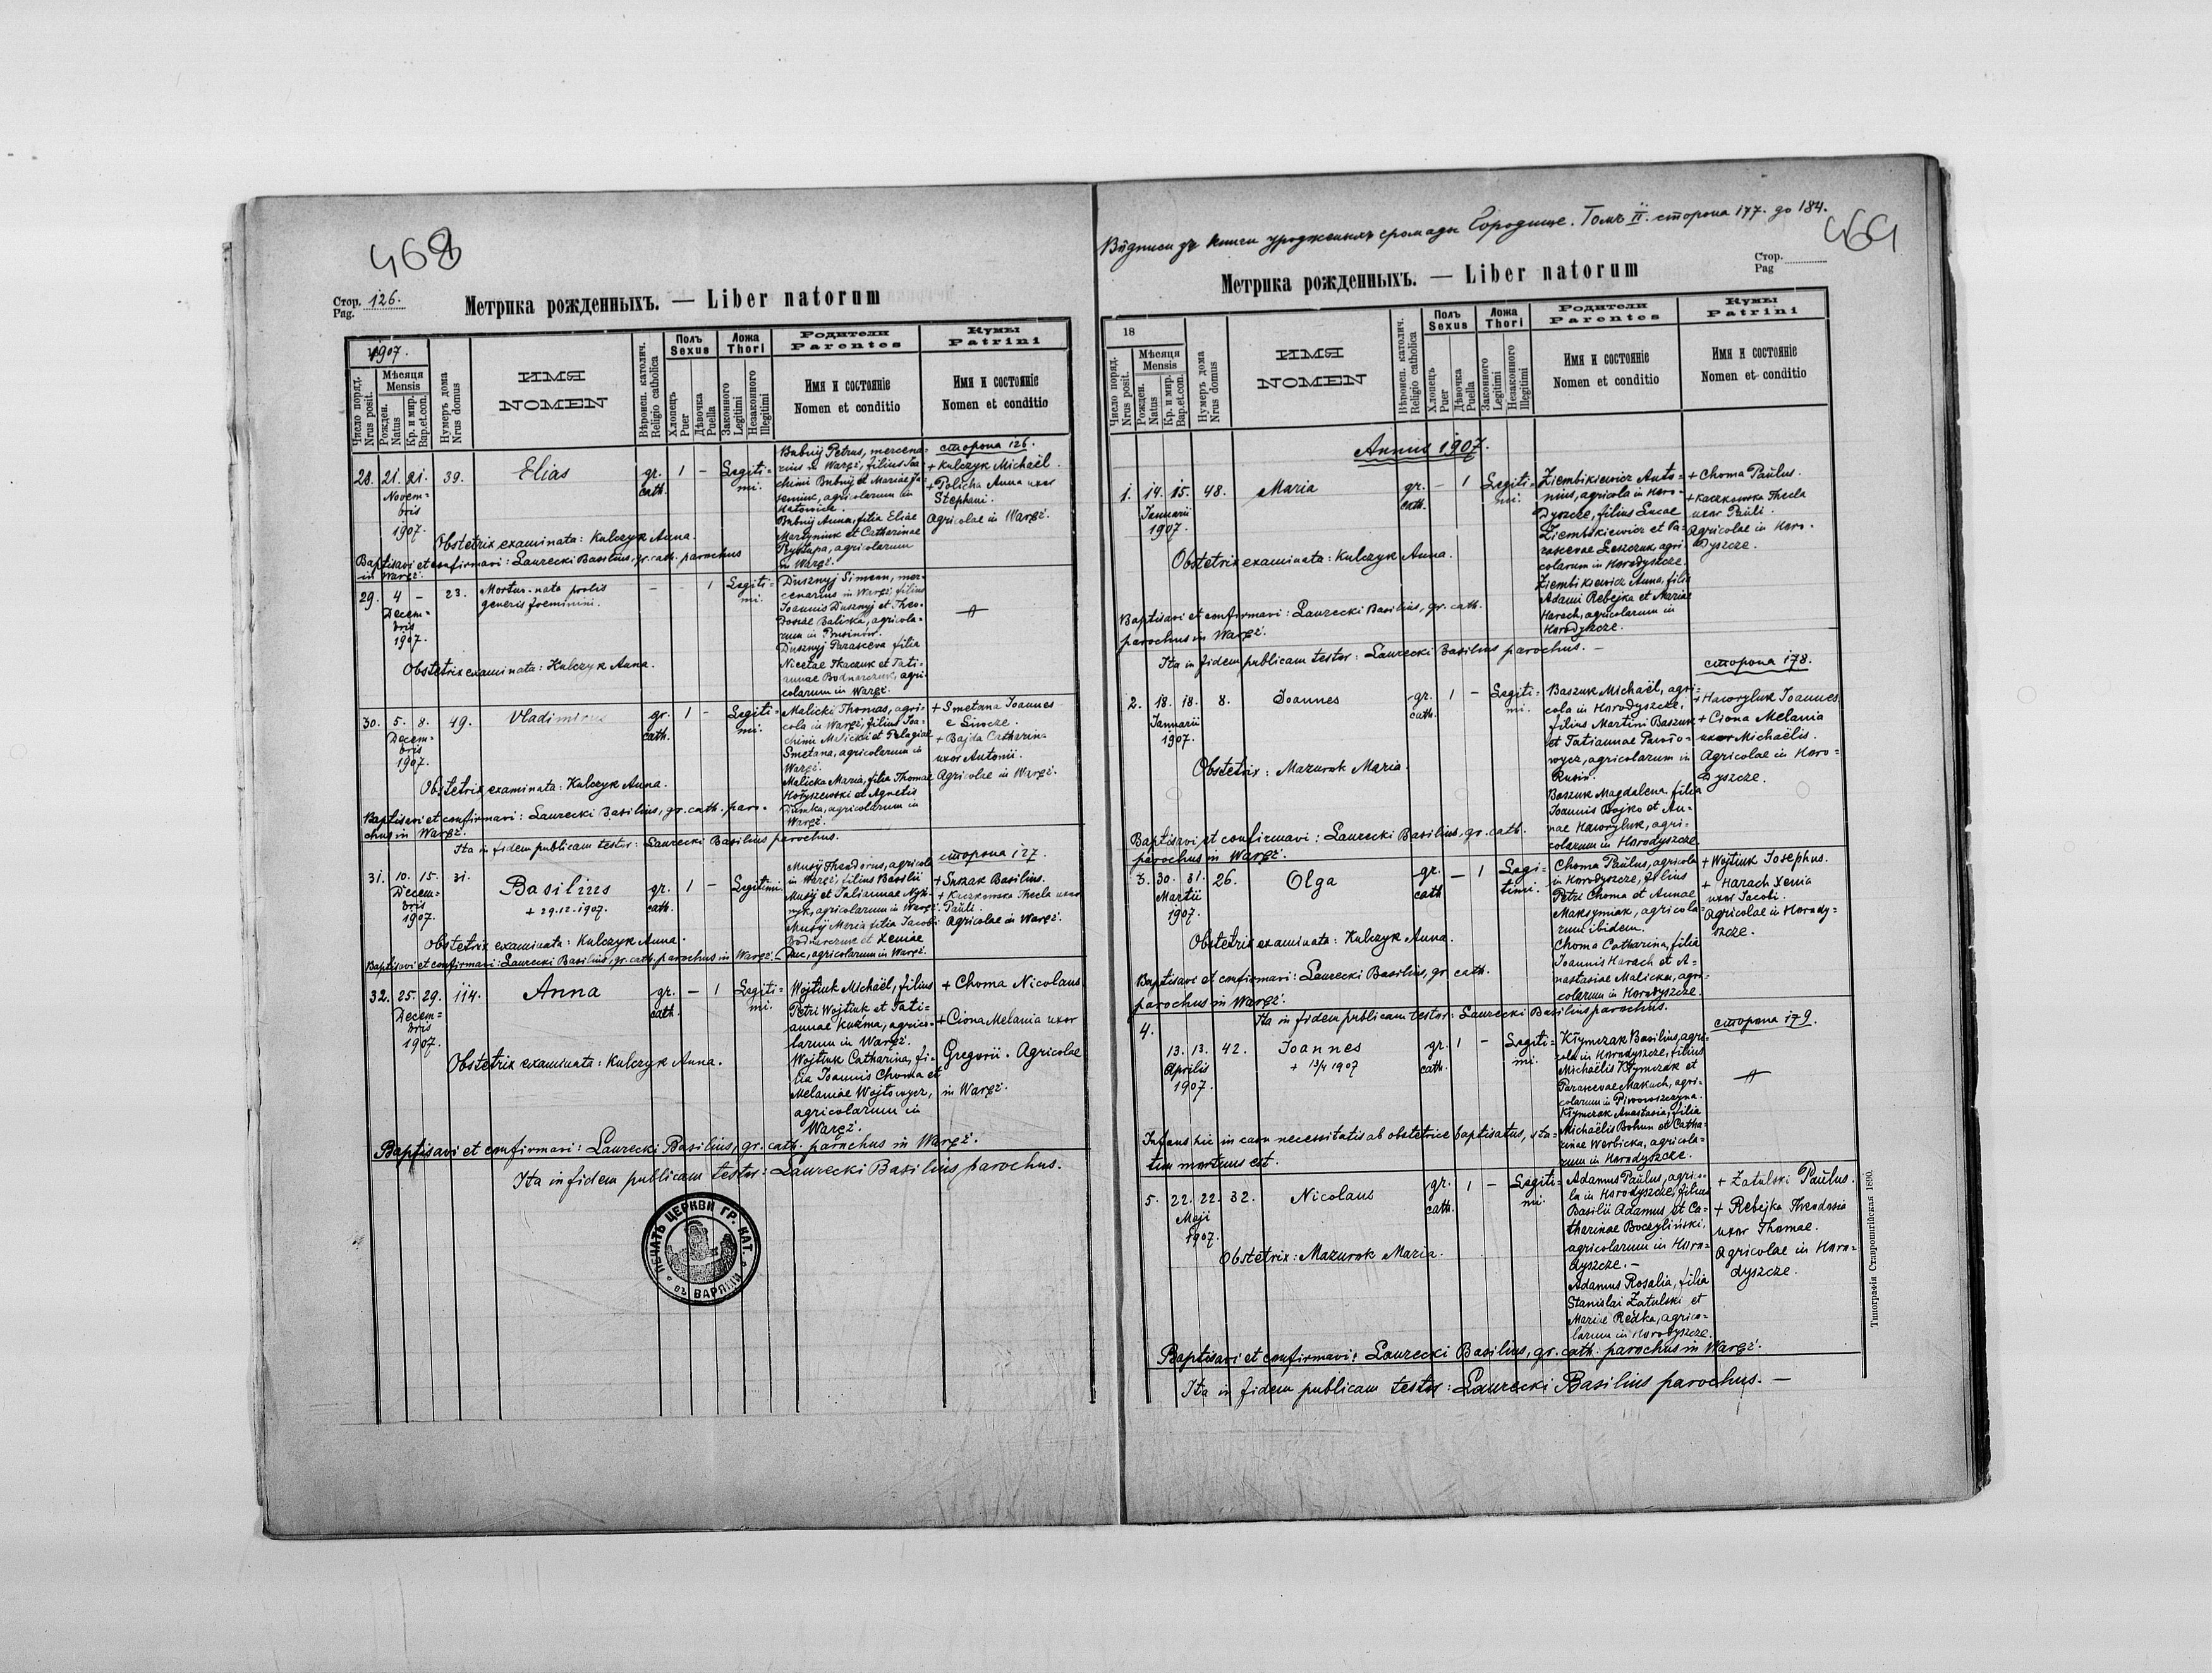 468
Стор. 126.
Pag.
Метрика рожденныхъ. — Liber natorum
1907.
Число поряд.
Nrus posit.
Мѣсяця
Mensis
Рожден.
Natus
Кр. и мир.
Bap.et.con.
Нумеръ дома
Nrus domus
ИМЯ
NOMEN
Вѣроисп. католич.
Religio catholica
Полъ
Sexus
Хлопець
Puer
Дѣвочка
Puella
Ложа
Thori
Законного
Legitimi
Незаконного
Illegitimi
Родители
Parentes
Имя и состояніе
Nomen et conditio
Кумы
Patrini
Имя и состояніе
Nomen et conditio
28. 21. 21. 39. Elias gr. 1 – Legiti=
cath. mi.
Novem=
bris
1907.
Bubnij Petrus, mercena=
rius in Waręż, filius Joa=
chimi Bubnij et Mariae
agricolarum in
Bubnij Anna, filia Eliae
Martyniuk et Catharinae
agricolarum
in Waręż.
сторона 126.
+ Kulczyk Michaël.
+ Policha Anna uxor
Stephani.
Agricolae in Waręż.
Obstetrix examinata: Kulczyk Anna.
Baptisavi et confirmavi: Laurecki Basilius, gr. cath. parochus
in Waręż.
29. 4 – 23. Mortuo-nata prolis – – 1 Legiti=
generis foeminini. mi.
Decem=
bris
1907.
Dusznyj Simeon, mer=
cenarius in Waręż, filius
Joannis Dusznyj et Theo=
dosiae Balicka, agricola=
rum in Prusinów.
Dusznyj Parasceva filia
Nicetae Tkaczuk et Tati=
annae Bodnarczuk, agri=
colarum in Waręż.
Obstetrix examinata: Kulczyk Anna.
30. 5. 8. 49. Vladimirus gr. 1 – Legiti=
cath. mi.
Decem=
bris
1907.
Malicki Thomas, agri=
cola in Waręż, filius Joa=
chimi Malicki et Pelagiae
Smetana, agricolarum in
Waręż.
Malicka Maria, filia Thomae
et Agnetis
Dumka, agricolarum in
Waręż.
+ Smetana Joannes
+ Bajda Catharina
uxor Antonii.
Agricolae in Waręż.
Obstetrix examinata: Kulczyk Anna.
Baptisavi et confirmavi: Laurecki Basilius, gr. cath. paro-
chus in Waręż.
Ita in fidem publicam testor: Laurecki Basilius parochus.
31. 10. 15. 31. Basilius gr. 1 – Legitimi.
+ 29.12.1907. cath.
Decem=
bris
1907.
Musij Theodorus, agricola
in Waręż, filius Basilii
Musij et
agricolarum in Waręż.
Musij Maria filia Jacobi
Bodnarczuk et Xeniae
Duc, agricolarum in Waręż.
сторона 127.
+ Suszak Basilius.
+ Kaczkowska Thecla uxor
Pauli.
Agricolae in Waręż.
Obstetrix examinata: Kulczyk Anna.
Baptisavi et confirmavi: Laurecki Basilius, gr. cath. parochus in Waręż. –
32. 25. 29. 114. Anna gr. – 1 Legiti=
cath. mi.
Decem=
bris
1907.
Wojtiuk Michaël, filius
Petri Wojtiuk et Tati=
annae Kuźma, agrico=
larum in Waręż.
Wojtiuk Catharina, fi=
lia Joannis Choma et
Melaniae Wojtowycz,
agricolarum in
Waręż.
+ Choma Nicolaus
+ Ciona Melania uxor
Gregorii. Agricolae
in Waręż.
Obstetrix examinata: Kulczyk Anna.
Baptisavi et confirmavi: Laurecki Basilius, gr. cath. parochus in Waręż.
Ita in fidem publicam testor: Laurecki Basilius parochus.
ПЕЧАТЬ ЦЕРКВИ ГР. КАТ.
ВЪ ВАРЯЖИ
Відписи зъ книги урожденныхъ громады Городище. Томъ II. сторона 177. до 184.
469
Стор.
Pag
Метрика рожденныхъ. — Liber natorum
18
Число поряд.
Nrus posit.
Мѣсяця
Mensis
Рожден.
Natus
Кр. и мир.
Bap.et.con.
Нумеръ дома
Nrus domus
ИМЯ
NOMEN
Вѣроисп. католич.
Religio catholica
Полъ
Sexus
Хлопець
Puer
Дѣвочка
Puella
Ложа
Thori
Законного
Legitimi
Незаконного
Illegitimi
Родители
Parentes
Имя и состояніе
Nomen et conditio
Кумы
Patrini
Имя и состояніе
Nomen et conditio
Annus 1907.
1. 14. 15. 48. Maria gr. – 1 Legiti=
cath. mi.
Januarii
1907.
Ziembikiewicz Anto=
nius, agricola in Horo=
dyszcze, filius Lucae
Ziembikiewicz et Pa=
rascevae Leszczuk agri
colarum in Horodyszcze.
Ziembikiewicz Anna, filia
Adami Rebejka et Mariae
Harach, agricolarum in
Horodyszcze.
+ Choma Paŭlus.
+ Kaczkowska Thecla
uxor Pauli.
Agricolae in Horo=
dyszcze.
Obstetrix examinata: Kulczyk Anna.
Baptisavi et confirmavi: Laurecki Basilius, gr. cath.
parochus in Waręż.
Ita in fidem publicam testor: Laurecki Basilius parochus. –
2. 18. 18. 8. Joannes gr. 1 – Legiti=
cath. mi.
Januarii
1907.
Baszuk Michaël, agri=
cola in Horodyszcze,
filius Martini Baszuk
et Tatiannae
agricolarum in
Rusin.
Baszuk Magdalena filia
Joannis Bojko et An=
nae Hawryluk, agri=
colarum in Horodyszcze.
сторона 178.
+ Hawryluk Joannes
+ Ciona Melania
uxor Michaëlis.
Agricolae in Horo=
dyszcze.
Obstetrix: Mazurok Maria.
Baptisavi et confirmavi: Laurecki Basilius, gr. cath.
parochus in Waręż.
3. 30. 31. 26. Olga gr. – 1 Legi=
cath timi.
Martii
1907.
Choma Paŭlus, agricola
in Horodyszcze, filius
Petri Choma et Annae
Maksymiak, agricola=
rum ibidem.
Choma Catharina, filia
Joannis Harach et A=
nastasiae Malicka, agri=
colarum in Horodyszcze.
+ Wojtiuk Josephus.
+ Harach Xenia
uxor Jacobi.
Agricolae in Horody=
szcze.
Obstetrix examinata: Kulczyk Anna.
Baptisavi et confirmavi: Laurecki Basilius, gr. cath.
parochus in Waręż.
Ita in fidem publicam testor: Laurecki Basilius parochus.
4. 13. 13. 42. Joannes gr. 1 – Legiti=
+ 13/4 1907 cath. mi.
Aprilis
1907.
Kłymczak Basilius, agri=
cola in Horodyszcze, filius
Michaëlis Kłymczak et
Parascevae Makuch, agri=
colarum in
Kłymczak Anastasia, filia
Michaëlis Bohun et Catha=
rinae Werbicka, agricola=
rum in Horodyszcze.
сторона 179.
Infans hic in casu necessitatis ab obstetrice baptisatus, sta=
tim mortuus est.
5. 22. 22. 32. Nicolaus gr. 1 – Legiti=
cath. mi.
Maji
1907.
Adamus Paŭlus, agrico=
la in Horodyszcze, filius
Basilii Adamus et Ca=
therinae Boczyliński,
agricolarum in Horo=
dyszcze. –
Adamus Rosalia, filia
Stanislai Zatulski et
Mariae Redka, agrico=
larum in Horodyszcze.
+ Zatulski Paŭlus.
+ Rebejka Theodosia
uxor Thomae.
Agricolae in Horo=
dyszcze.
Obstetrix: Mazurok Maria.
Baptisavi et confirmavi: Laurecki Basilius, gr. cath. parochus in Waręż.
Ita in fidem publicam testor: Laurecki Basilius parochus. –
Типографія Ставропигійская 1890.